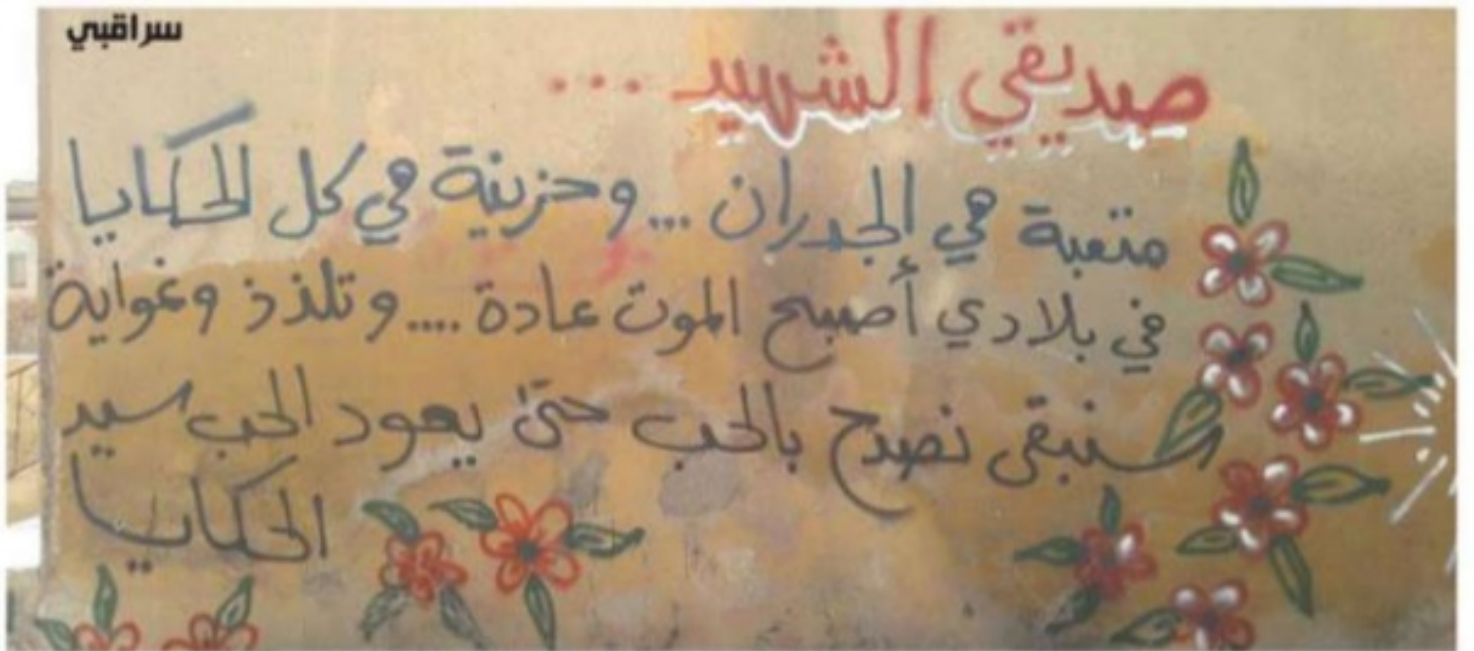 سراقبي
صديقي الشهيد ...
متعبة هي الجدران ... وحزينة هي كل الحكايا
في بلادي أصبح الموت عادة .... وتلذذ وغواية
سنبقى نصدح بالحب حتى يعود الحب سيد
الحكايا